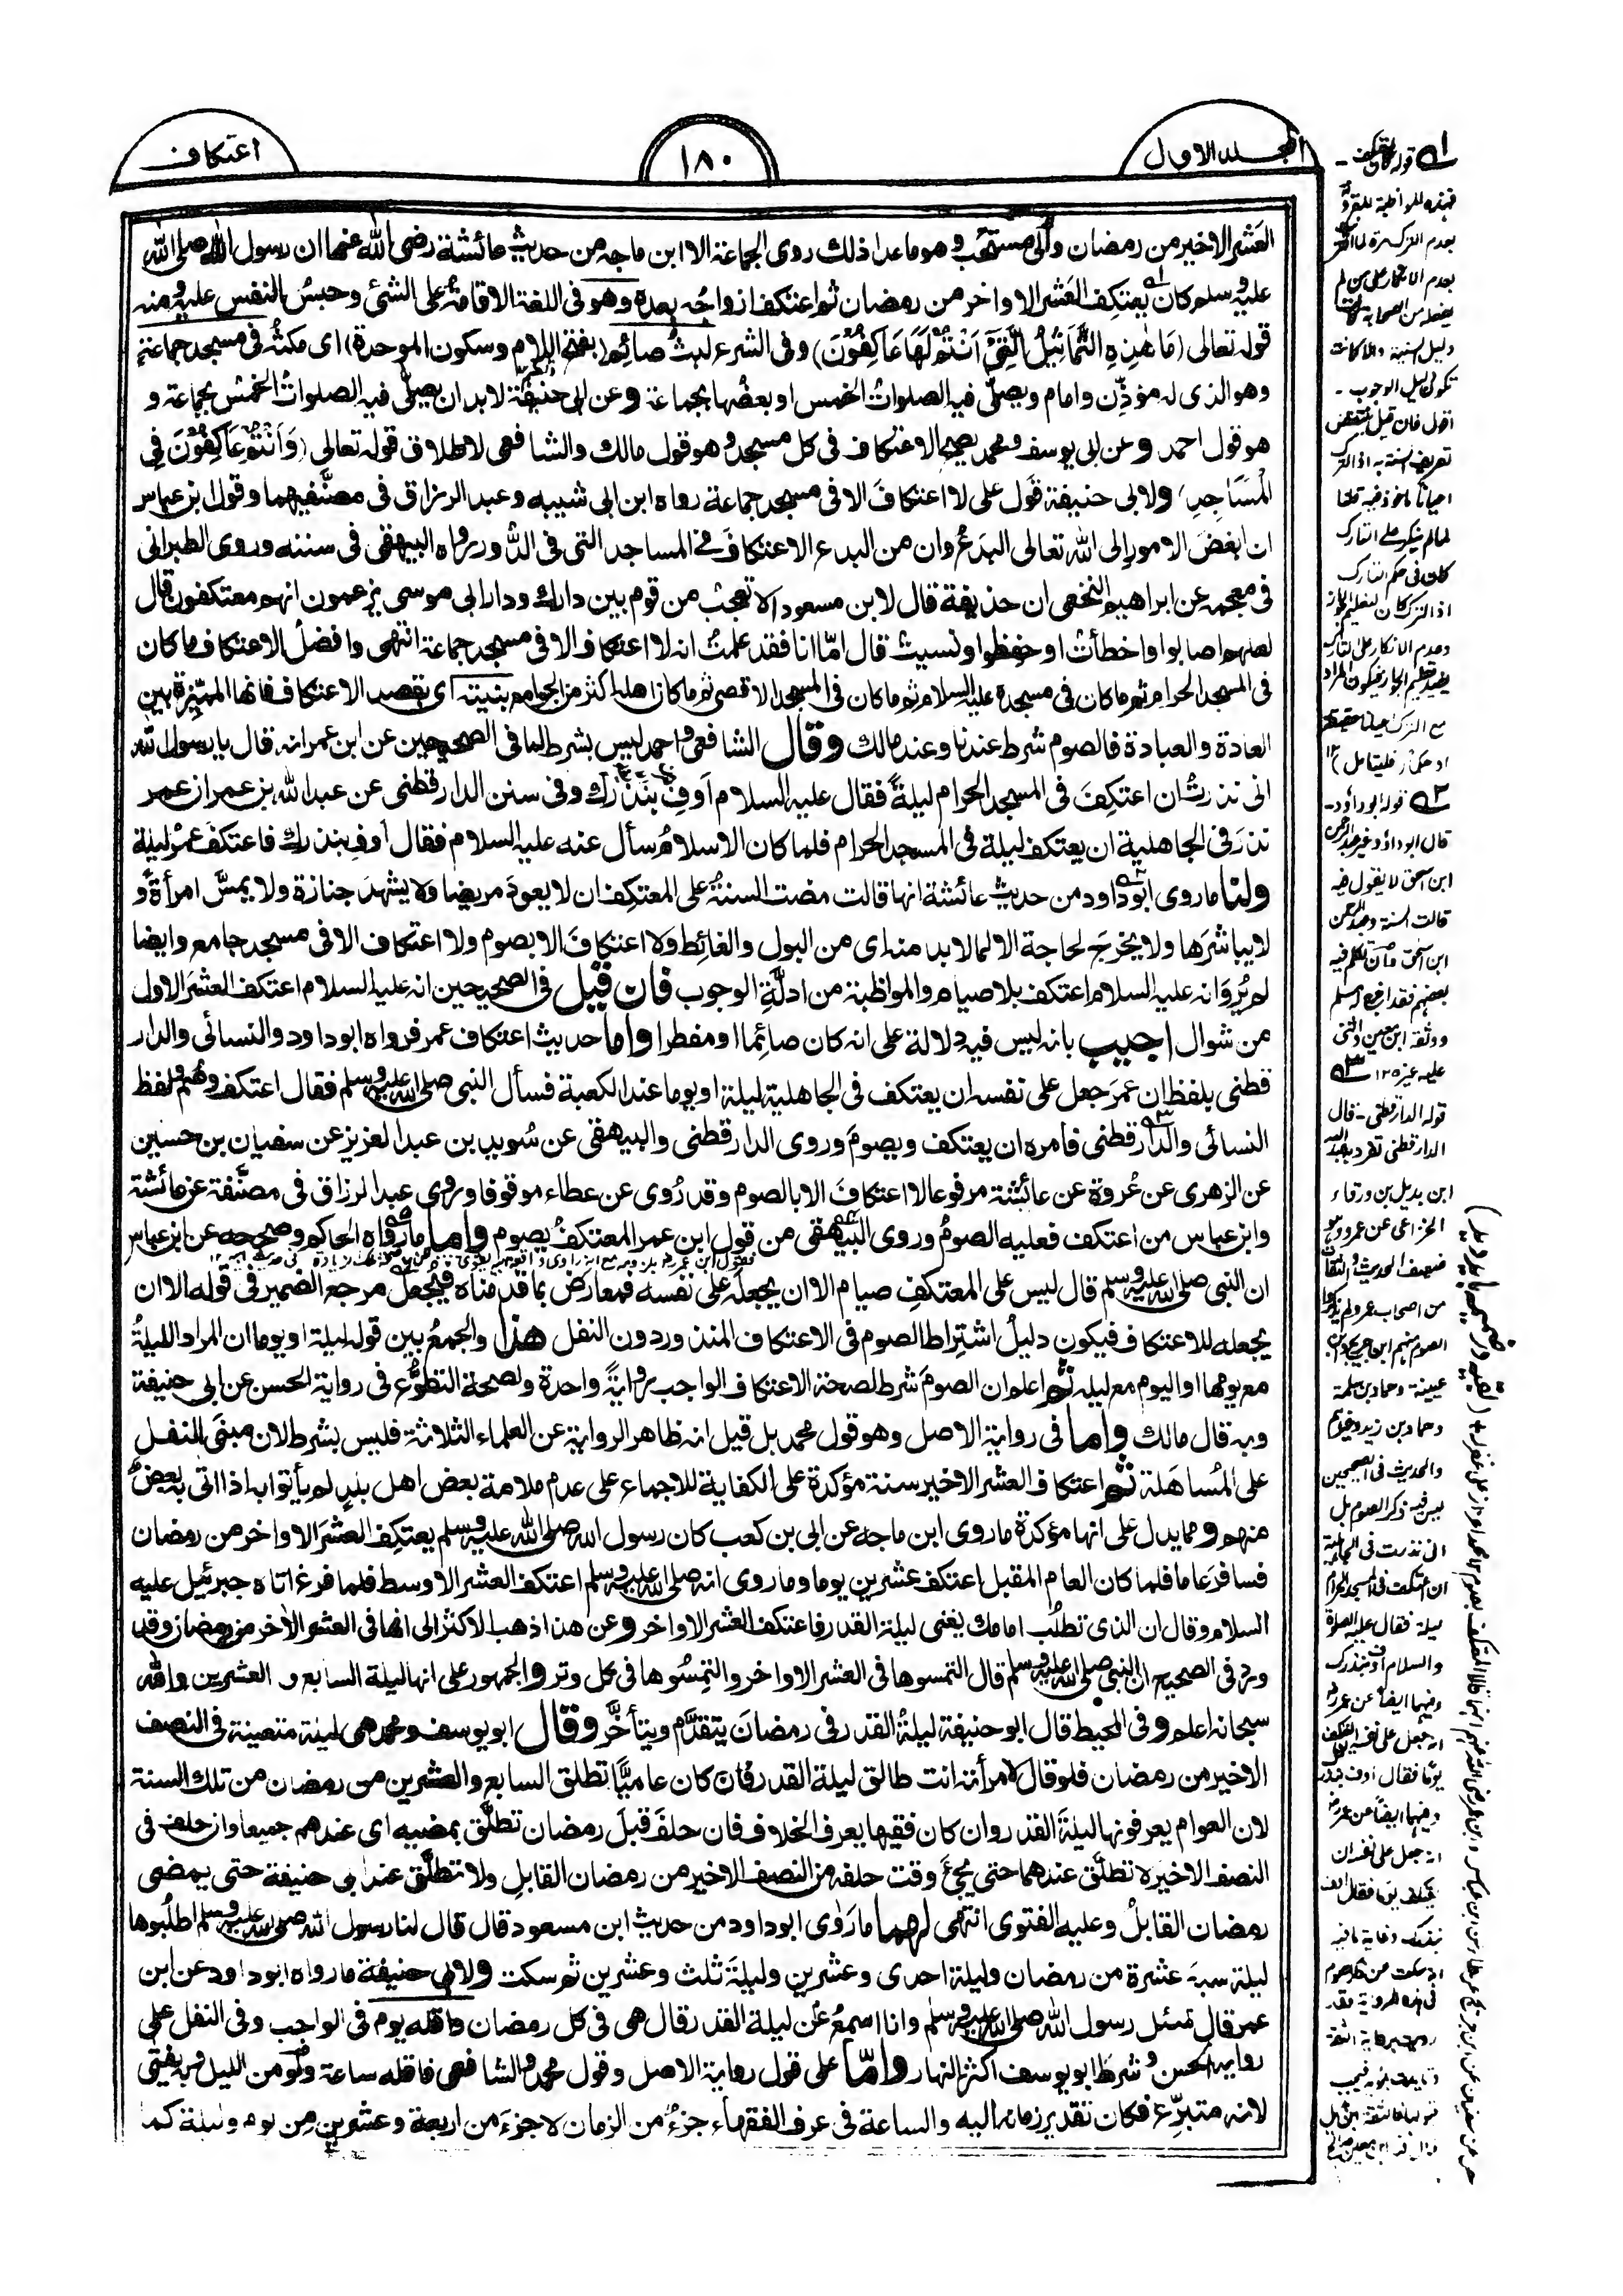 المجلد الاول
١٨٠
اعتكاف
العَشر الاخير من رمضان والٰى مستحب وهو ماعدا ذلك روى الجماعة الا ابن ماجه من حديث عائشة رضى الله عنها ان رسول الله صلى الله
عليه وسلم كان يعتكف العَشر الاواخر من رمضان ثم اعتكف ازواجُه بعده وهو فى اللغة الاقامةُ على الشئ وحبسُ النفس عليه ومنه
قوله تعالى (مَا هٰذِهِ التَّمَاثِيْلُ الَّتِىْٓ اَنْتُمْ لَهَا عَاكِفُوْنَ) وفى الشرع لبثُ صائم (بفتح اللام وسكون الموحدة) اى مكثُه فى مسجد جماعةٍ
وهو الذى له مؤذّن وامام ويصلّى فيه الصلواتُ الخمس او بعضُها بجماعة وعن ابى حنيفة لابد ان يصلّى فيه الصلواتُ الخمسُ بجماعة و
هو قول احمد وعن ابى يوسف ومحمد يصح الاعتكاف فى كل مسجد وهو قول مالك والشافعى لاطلاق قوله تعالى (وَاَنْتُمْ عَاكِفُوْنَ فِى
الْمَسَاجِدِ) ولابى حنيفة قول على لا اعتكافَ الا فى مسجد جماعة رواه ابن ابى شيبه وعبد الرزاق فى مصنَّفيهما وقول ابن عباس
ان ابغضَ الامور الى الله تعالى البدَعُ وان من البدع الاعتكافَ فى المساجد التى فى الدُّور رواه البيهقى فى سننه وروى الطبرانى
فى معجمه عن ابراهيم النخعى ان حذيفة قال لابن مسعود الا تعجب من قوم بين دارك ودار ابى موسى يزعمون انهم معتكفون قال
لعلهم اصابوا واخطأتَ او حفظوا ونسيتَ قال امّا انا فقد علمتُ انه لا اعتكاف الا فى مسجد جماعة انتهى وافضلُ الاعتكاف ما كان
فى المسجد الحرام ثم ما كان فى مسجده عليه السلام ثم ما كان فى المسجد الاقصى ثم ما كان اهله اكثر من الجوامع بنيته اى بقصد الاعتكاف فانها المميّزة بين
العادة والعبادة فالصوم شرط عندنا وعند مالك وقال الشافعى واحمد ليس بشرط لما فى الصحيحين عن ابن عمر انه قال يا رسول الله
انى نذرتُ ان اعتكِفَ فى المسجد الحرام ليلةً فقال عليه السلام اَوفِ بِنَذْرِك وفى سنن الدار قطنى عن عبد الله بن عمر ان عمر
نذرَ فى الجاهلية ان يعتكف ليلة فى المسجد الحرام فلما كان الاسلامُ سأل عنه عليه السلام فقال اوفِ بنذرك فاعتكف عمرُ ليلة
ولنا ما روى ابو داود من حديث عائشة انها قالت مضت السنةُ على المعتكِف ان لا يعودَ مريضا ولا يشهدَ جنازة ولا يمسَّ امرأة و
لا يباشرَها ولا يخرجَ لحاجة الا لما لابد منه اى من البول والغائِط ولا اعتكافَ الا بصوم ولا اعتكاف الا فى مسجد جامع وايضا
لم يُروَ انه عليه السلام اعتكف بلا صيام والمواظبة من ادلَّةِ الوجوب فان قيل فى الصحيحين انه عليه السلام اعتكف العشرَ الاول
من شوال اجيب بانه ليس فيه دلالة على انه كان صائما او مفطرا واما حديث اعتكاف عمر فرواه ابو داود والنسائى والدار
قطنى بلفظ ان عمرَ جعل على نفسه ان يعتكف فى الجاهلية ليلة او يوما عند الكعبة فسأل النبى صلى الله عليه وسلم فقال اعتكف وصُم ولفظ
النسائى والدار قطنى فامره ان يعتكف ويصومَ وروى الدار قطنى والبيهقى عن سُويد بن عبد العزيز عن سفيان بن حسين
عن الزهرى عن عُروة عن عائشة مرفوعا لا اعتكافَ الا بالصوم وقد رُوى عن عطاء موقوفا وروى عبد الرزاق فى مصنَّفه عن عائشة
وابن عباس من اعتكف فعليه الصومُ وروى البيهقى من قول ابن عمر المعتكفُ يصوم واما ما رواه الحاكم وصححه عن ابن عباس
ان النبى صلى الله عليه وسلم قال ليس على المعتكفِ صيام الا ان يجعلَه على نفسه فمعارض بما قدمناه فيُجعل مرجع الضمير فى قوله الا ان
يجعله للاعتكاف فيكون دليلُ اشتِراط الصوم فى الاعتكاف المنذور دون النفل هذا والجمعُ بين قوله ليلة او يوما ان المراد الليلةُ
مع يومها او اليوم مع ليله ثم اعلم ان الصومَ شرط لصحة الاعتكاف الواجب روايةً واحدة ولصحة التطوُّع فى رواية الحسن عن ابى حنيفة
وبه قال مالك واما فى رواية الاصل وهو قول محمد بل قيل انه ظاهر الرواية عن العلماء الثلاثة فليس بشرط لان مبنَى النفل
على المُساهَلة ثم اعتكاف العشر الاخير سنة مؤكدة على الكفاية للاجماع على عدم ملامة بعض اهل بلدٍ لم يأتوا به اذا اتى به بعضٌ
منهم ومما يدل على انها مؤكدة ما روى ابن ماجه عن ابى بن كعب كان رسول الله صلى الله عليه وسلم يعتكِف العشرَ الاواخر من رمضان
فسافرَ عاما فلما كان العام المقبل اعتكف عشرين يوما وما روى انه صلى الله عليه وسلم اعتكف العشر الاوسط فلما فرغ اتاه جبرئيل عليه
السلام وقال ان الذى تطلُب امامك يعنى ليلة القدر فاعتكف العشر الاواخر وعن هذا ذهب الاكثرُ الى انها فى العشر الأخر من رمضان وقد
ورد فى الصحيح ان النبى صلى الله عليه وسلم قال التمسوها فى العشر الاواخر والتمِسُوها فى كل وتر والجمهور على انها ليلة السابع و العشرين والله
سبحانه اعلم وفى المحيط قال ابو حنيفة ليلةُ القدر فى رمضانَ يتقدَّم ويتأخَّر وقال ابو يوسف ومحمد هى ليلة متعينة فى النصف
الاخير من رمضان فلو قال لامرأته انت طالق ليلة القدر فان كان عاميًّا تطلق السابع والعشرين من رمضان من تلك السنة
لان العوام يعرفونها ليلةَ القدر وان كان فقيها يعرف الخلاف فان حلفَ قبلَ رمضان تطلَّق بمضيه اى عندهم جميعا وان حلف فى
النصف الاخير لا تطلَّق عندهما حتى يجئَ وقت حلفه من النصف الاخير من رمضان القابلِ ولا تطلَّق عند ابى حنيفة حتى يمضى
رمضان القابلُ وعليه الفتوى انتهى لهما ما رَوٰى ابو داود من حديث ابن مسعود قال قال لنا رسول الله صلى الله عليه وسلم اطلُبوها
ليلة سبعَ عشرة من رمضان وليلة احدى وعشرين وليلةَ ثلث وعشرين ثم سكت ولابى حنيفة ما رواه ابو داود عن ابن
عمر قال سُئل رسول الله صلى الله عليه وسلم وانا اسمعُ عن ليلة القدر قال هى فى كل رمضان واقله يوم فى الواجب وفى النفل على
رواية الحسن وشرطَ ابو يوسف اكثرَ النهار وامّا على قول رواية الاصل وقول محمد والشافعى فاقله ساعة ولو من الليل وبه يفتٰى
لانه متبرِّع فكان تقدير زمانه اليه والساعة فى عرف الفقهاء جزءٌ من الزمان لا جزءَ من اربعة وعشرين مِن يوم وليلة كما
قوله كان يعتكف -
فهذه المواظبة المقرونة
بعدم الترك مرة لما اقترنت
بعدم الانكار على من لم
يفعله من الصحابة كانت
دليل السنية والا كانت
تكون دليل الوجوب -
قوله ابو داؤد -
قال ابو داؤد غير عبد الرحمن
ابن اسحق لا يقول فيه
قالت السنة وعبد الرحمن
ابن اسحق وان تكلم فيه
بعضهم فقد اخرج له مسلم
ووثقه ابن معين واثنى
عليه غيره ١٢
قوله الدار قطنى - قال
الدار قطنى تفرد به عبد الله
ابن بديل بن ورقاء
الخزاعى عن عمرو وهو
ضعيف الحديث والثقات
من اصحاب عمرو لم يذكروا
الصوم منهم ابن جريج وابن
عيينة وحماد بن سلمة
وحماد بن زيد وغيرهم
والحديث فى الصحيحين
ليس فيه ذكر الصوم بل
انى نذرت فى الجاهلية
ان اعتكف فى المسجد الحرام
ليلة فقال عليه الصلوة
والسلام اوف بنذرك